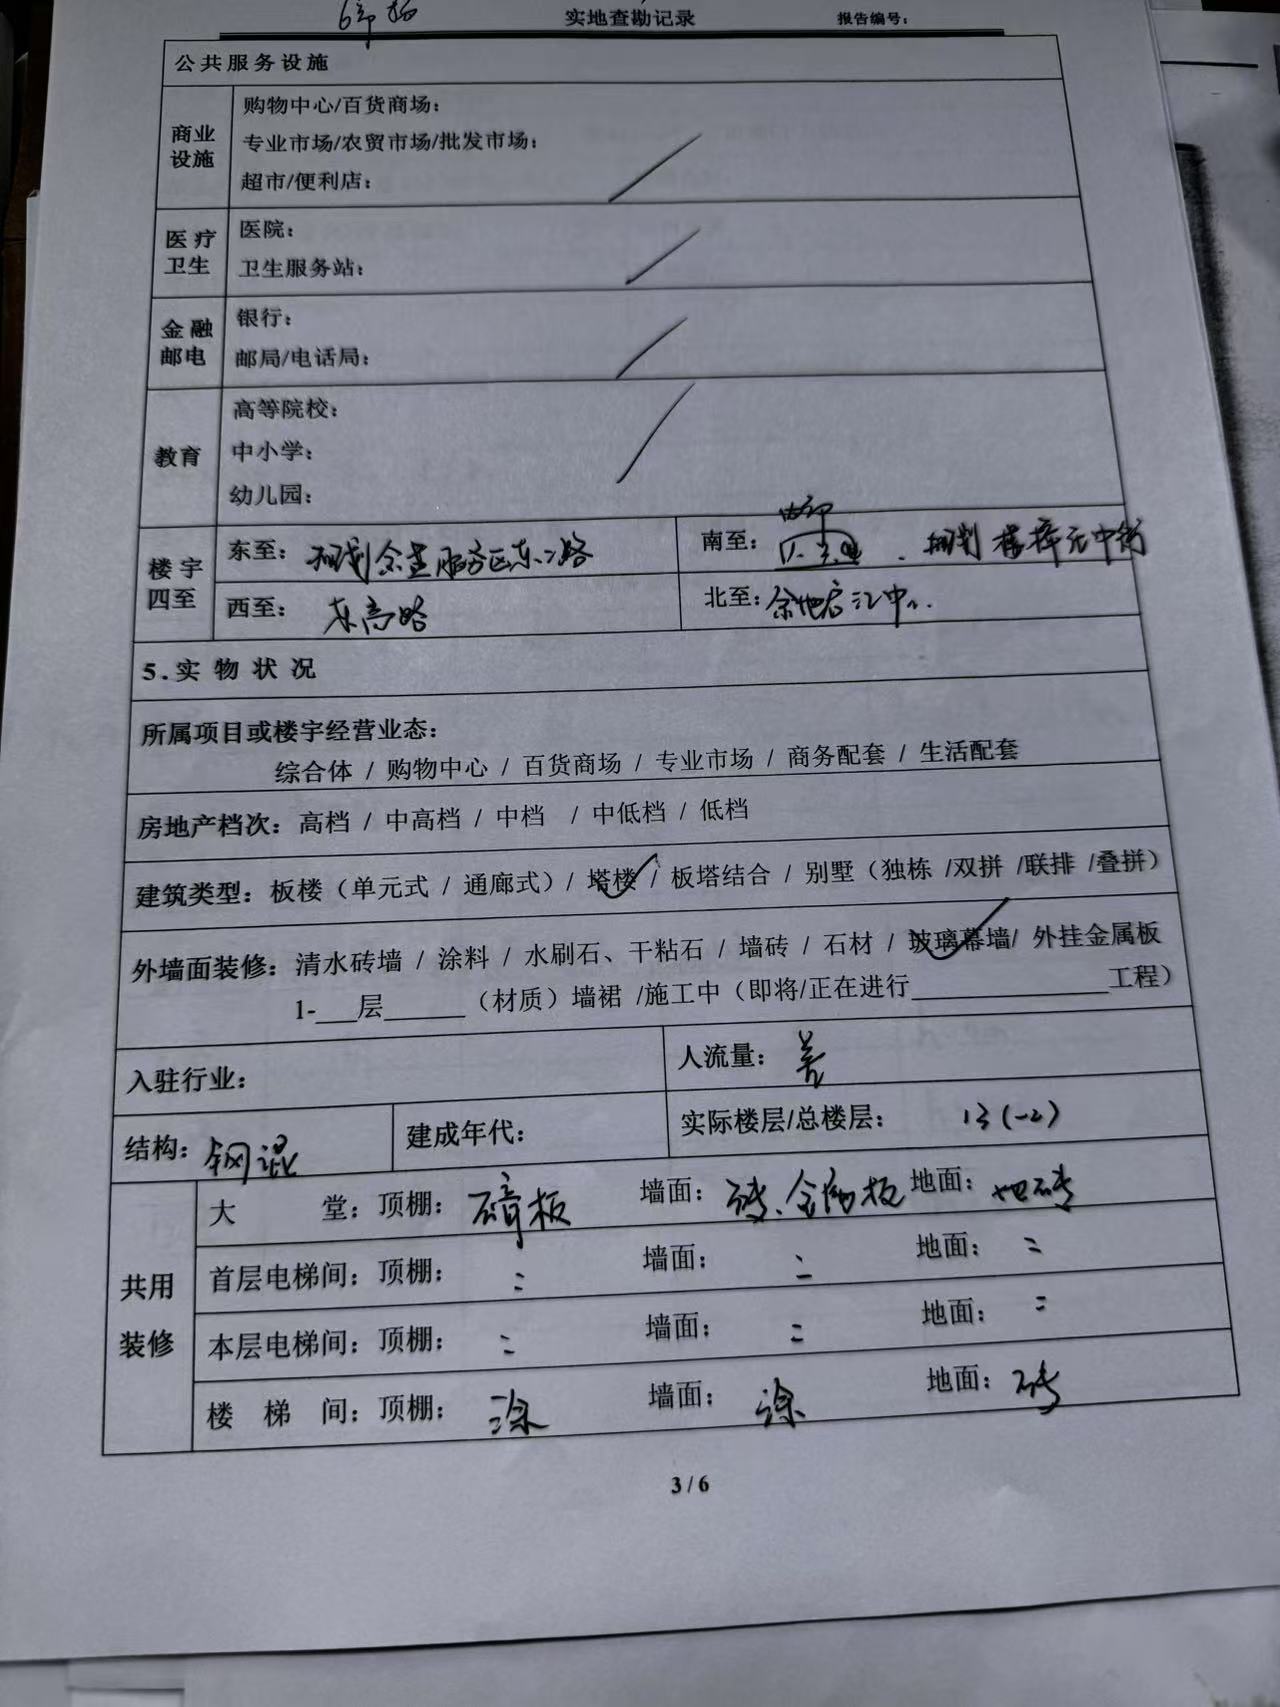 实地查勘记录 报告编号：
公共服务设施
商业设施
购物中心/百货商场：
专业市场/农贸市场/批发市场：
超市/便利店：
医疗卫生
医院：
卫生服务站：
金融邮电
银行：
邮局/电话局：
教育
高等院校：
中小学：
幼儿园：
楼宇四至
东至： 规划 服务区东二路 南至： 规划
西至： 东高路 北至：
5.实物状况
所属项目或楼宇经营业态：
综合体 / 购物中心 / 百货商场 / 专业市场 / 商务配套 / 生活配套
房地产档次：高档 / 中高档 / 中档 / 中低档 / 低档
建筑类型：板楼（单元式 / 通廊式）/ 塔楼 / 板塔结合 / 别墅（独栋 /双拼 /联排 /叠拼）
外墙面装修：清水砖墙 / 涂料 / 水刷石、干粘石 / 墙砖 / 石材 / 玻璃幕墙/ 外挂金属板
1-___层______（材质）墙裙 /施工中（即将/正在进行______________工程）
入驻行业： 人流量： 差
结构：钢混 建成年代： 实际楼层/总楼层： 13(-2)
共用装修
大 堂：顶棚： 墙面： 砖、金属板 地面： 地砖
首层电梯间：顶棚： 〃 墙面： 〃 地面： 〃
本层电梯间：顶棚： 〃 墙面： 〃 地面： 〃
楼 梯 间：顶棚： 涂 墙面： 涂 地面： 砖
3 / 6